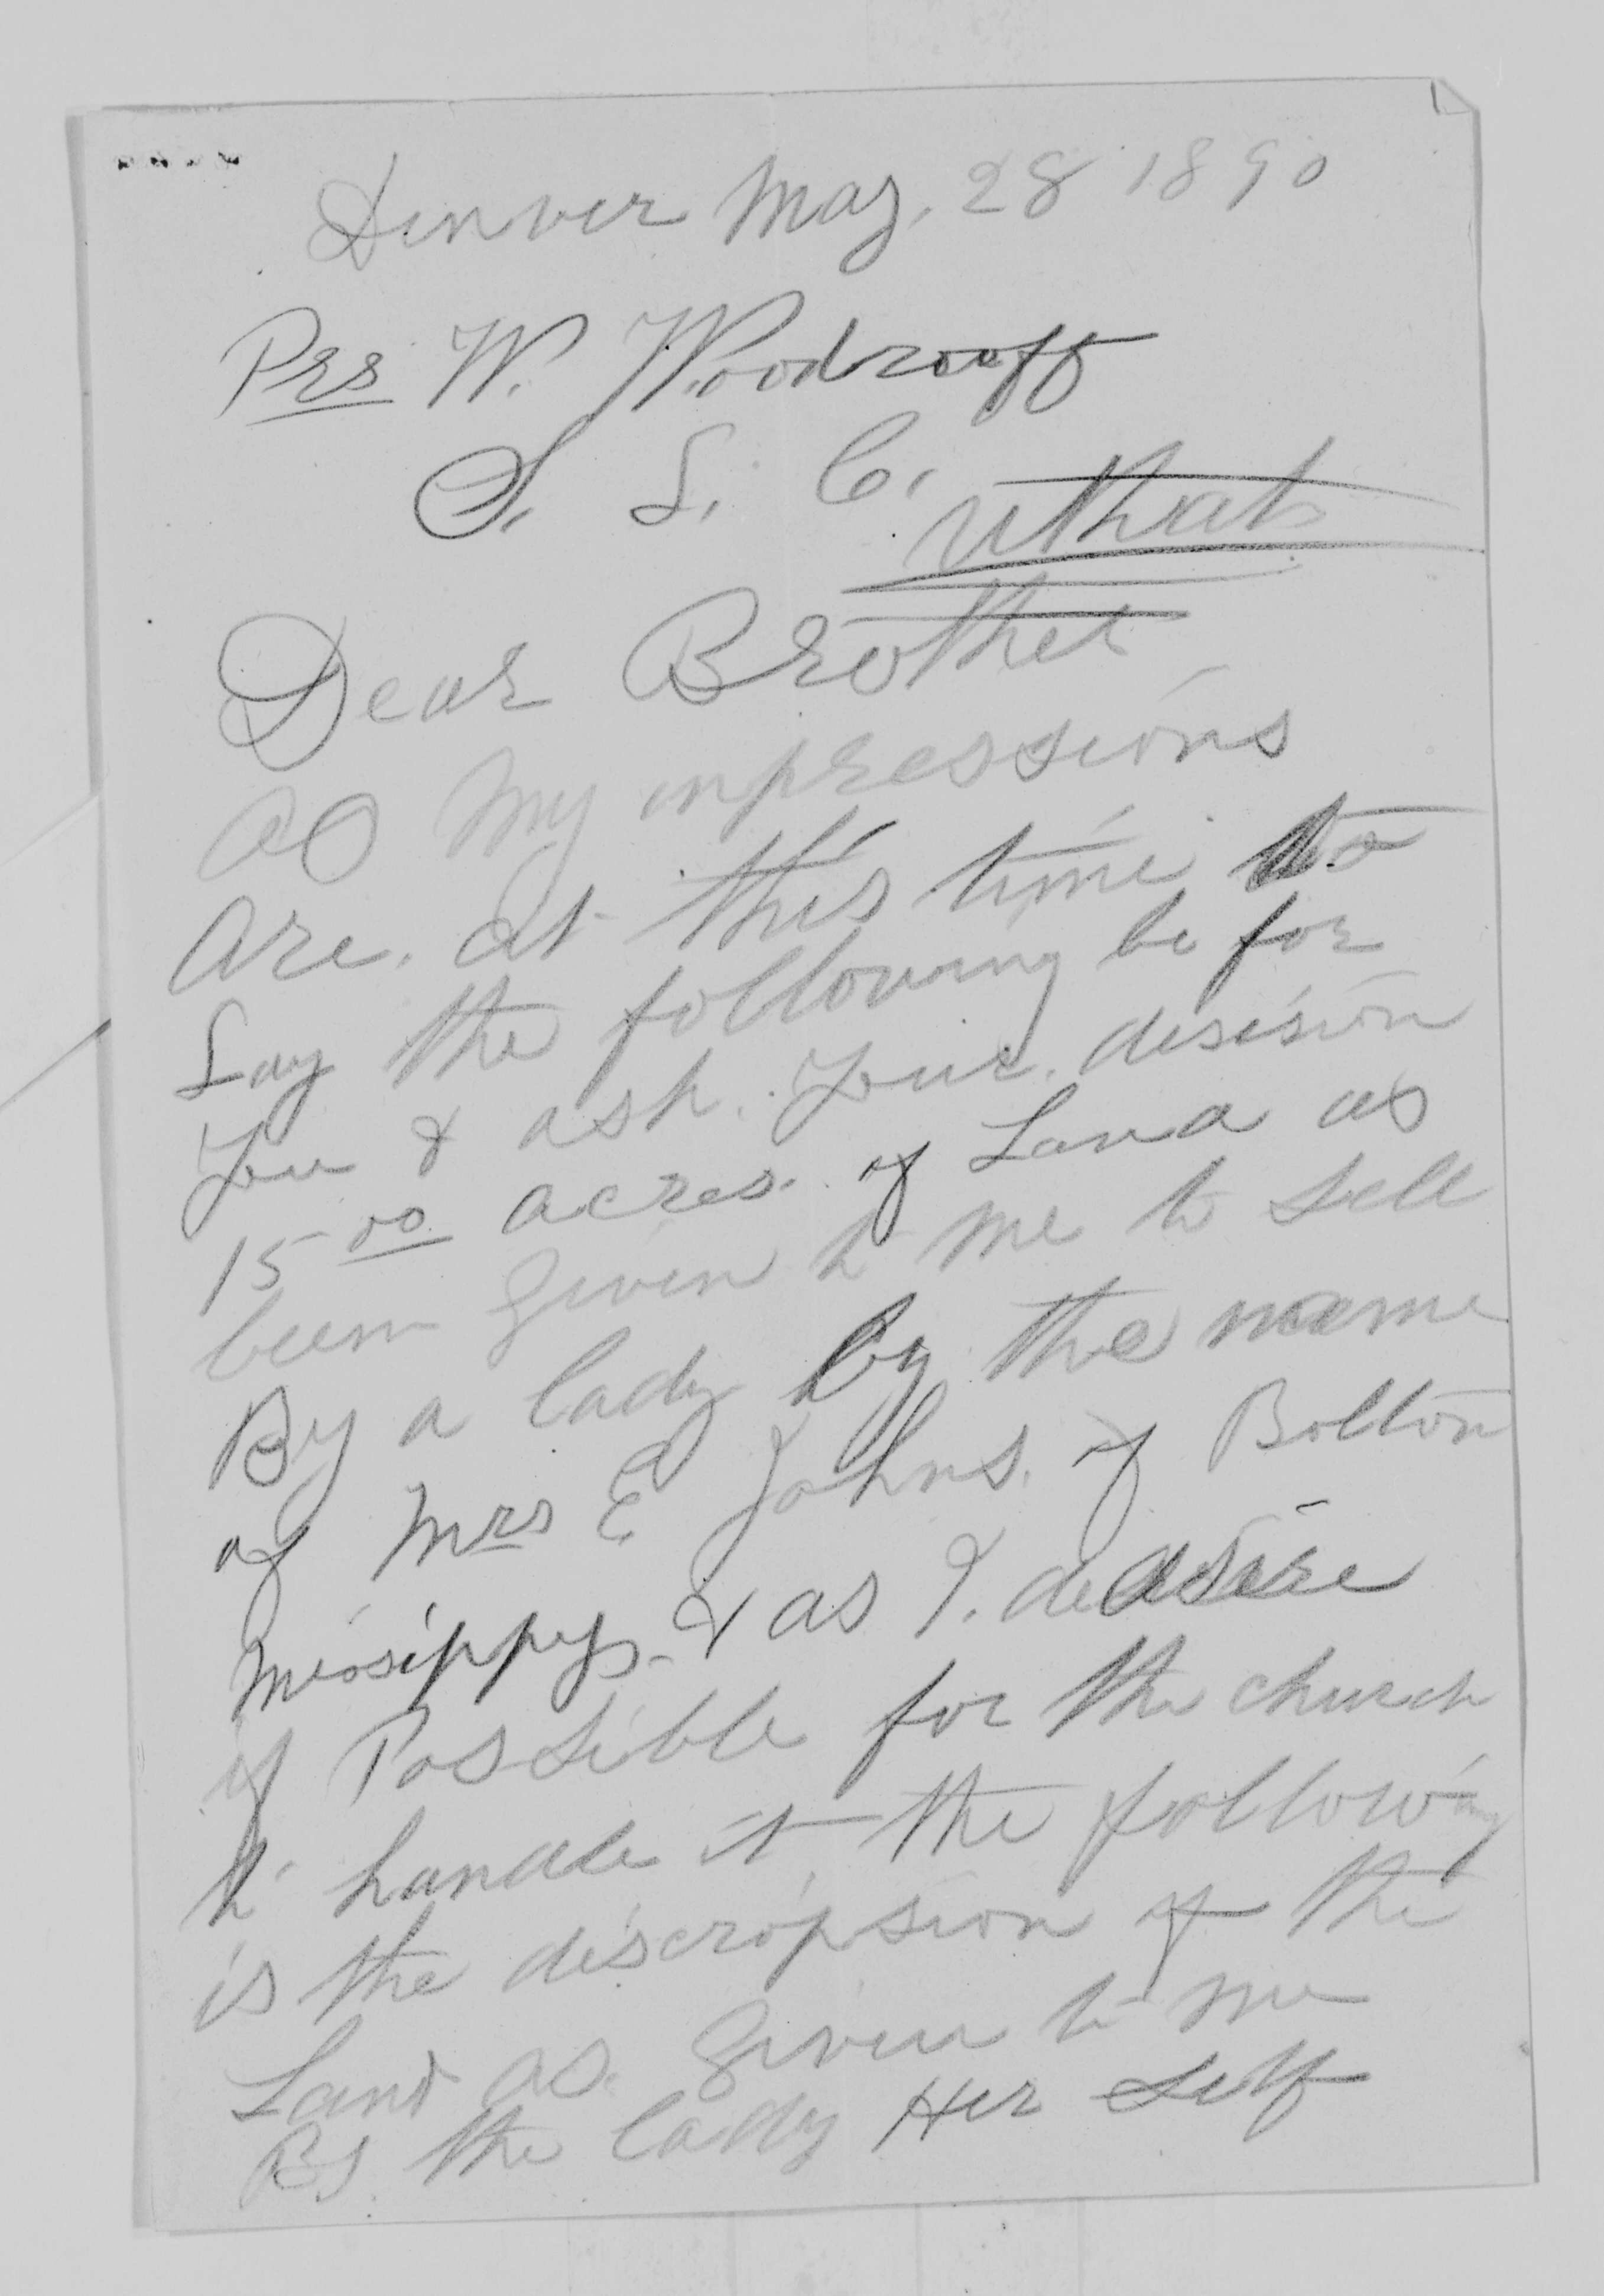 Denver May. 28 1890
Prs W. Woodrouff
S. L. C.
Uthat
Dear Brother
as My inpressions
are. at this time to
Lay the following be for
You & ask. Your. desision
1500 acres. of Land as
been given to me to sell
By a lady by the name
of Mrs E Johns. of Bolton
Missippy. & as I. deasire
if Possible for the church
to handle it, the following
is the discripsion of the
Land as. given to me
By. the lady Her self